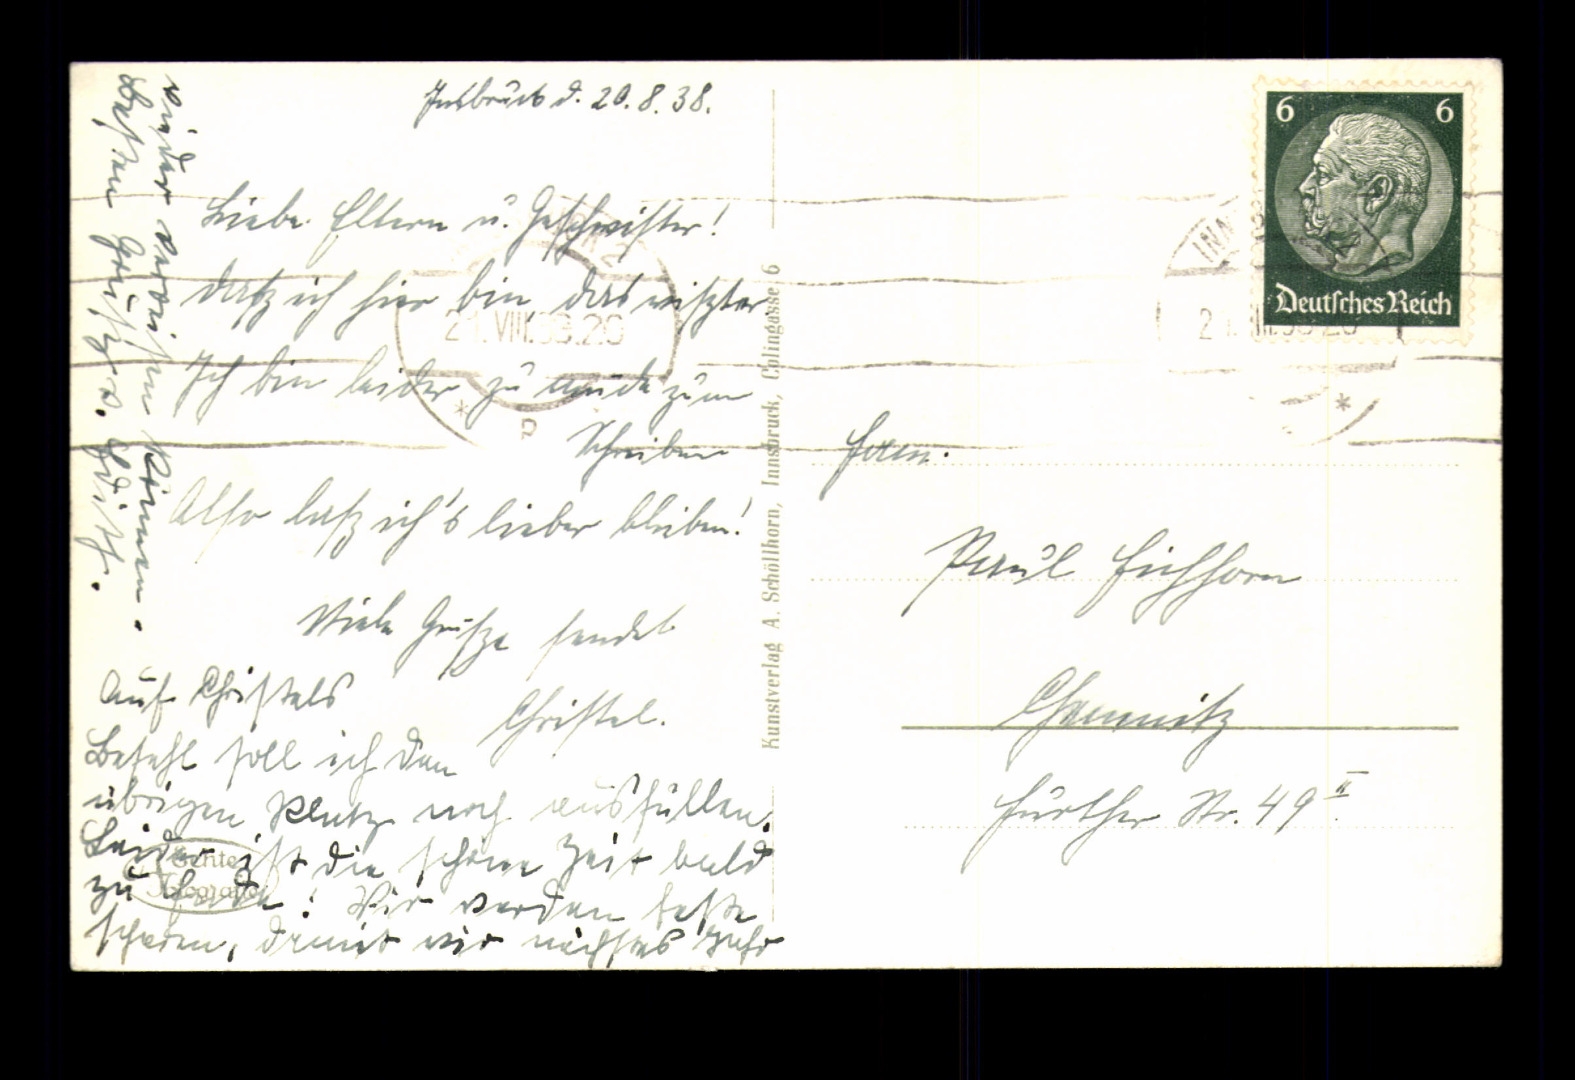 Insbruck d. 20.8.38.
Liebe Eltern u. Geschwister!
Dasz ich hier bin, das wiszter
Ich bin leider zu müde zum
Schreiben
Also lasz ich's lieber bleiben!
Viele Grüsze sendet
Christel.
Auf Christels
Befehl soll ich den
übrigen Platz noch ausfüllen.
Leider ist die schöne Zeit bald
zu Ende! Wir werden feste
sparen, damit wir nächstes Jahr
wieder verreisen können.
Besten Grusz Edith.
Fam.
Paul Eichhorn
Chemnitz
Further Str. 49 II
6 6
Deutsches Reich
INN
21.VIII.38.20
a
Kunstverlag A. Schöllhorn, Innsbruck, Cölingasse 6
Echte
Fotografie